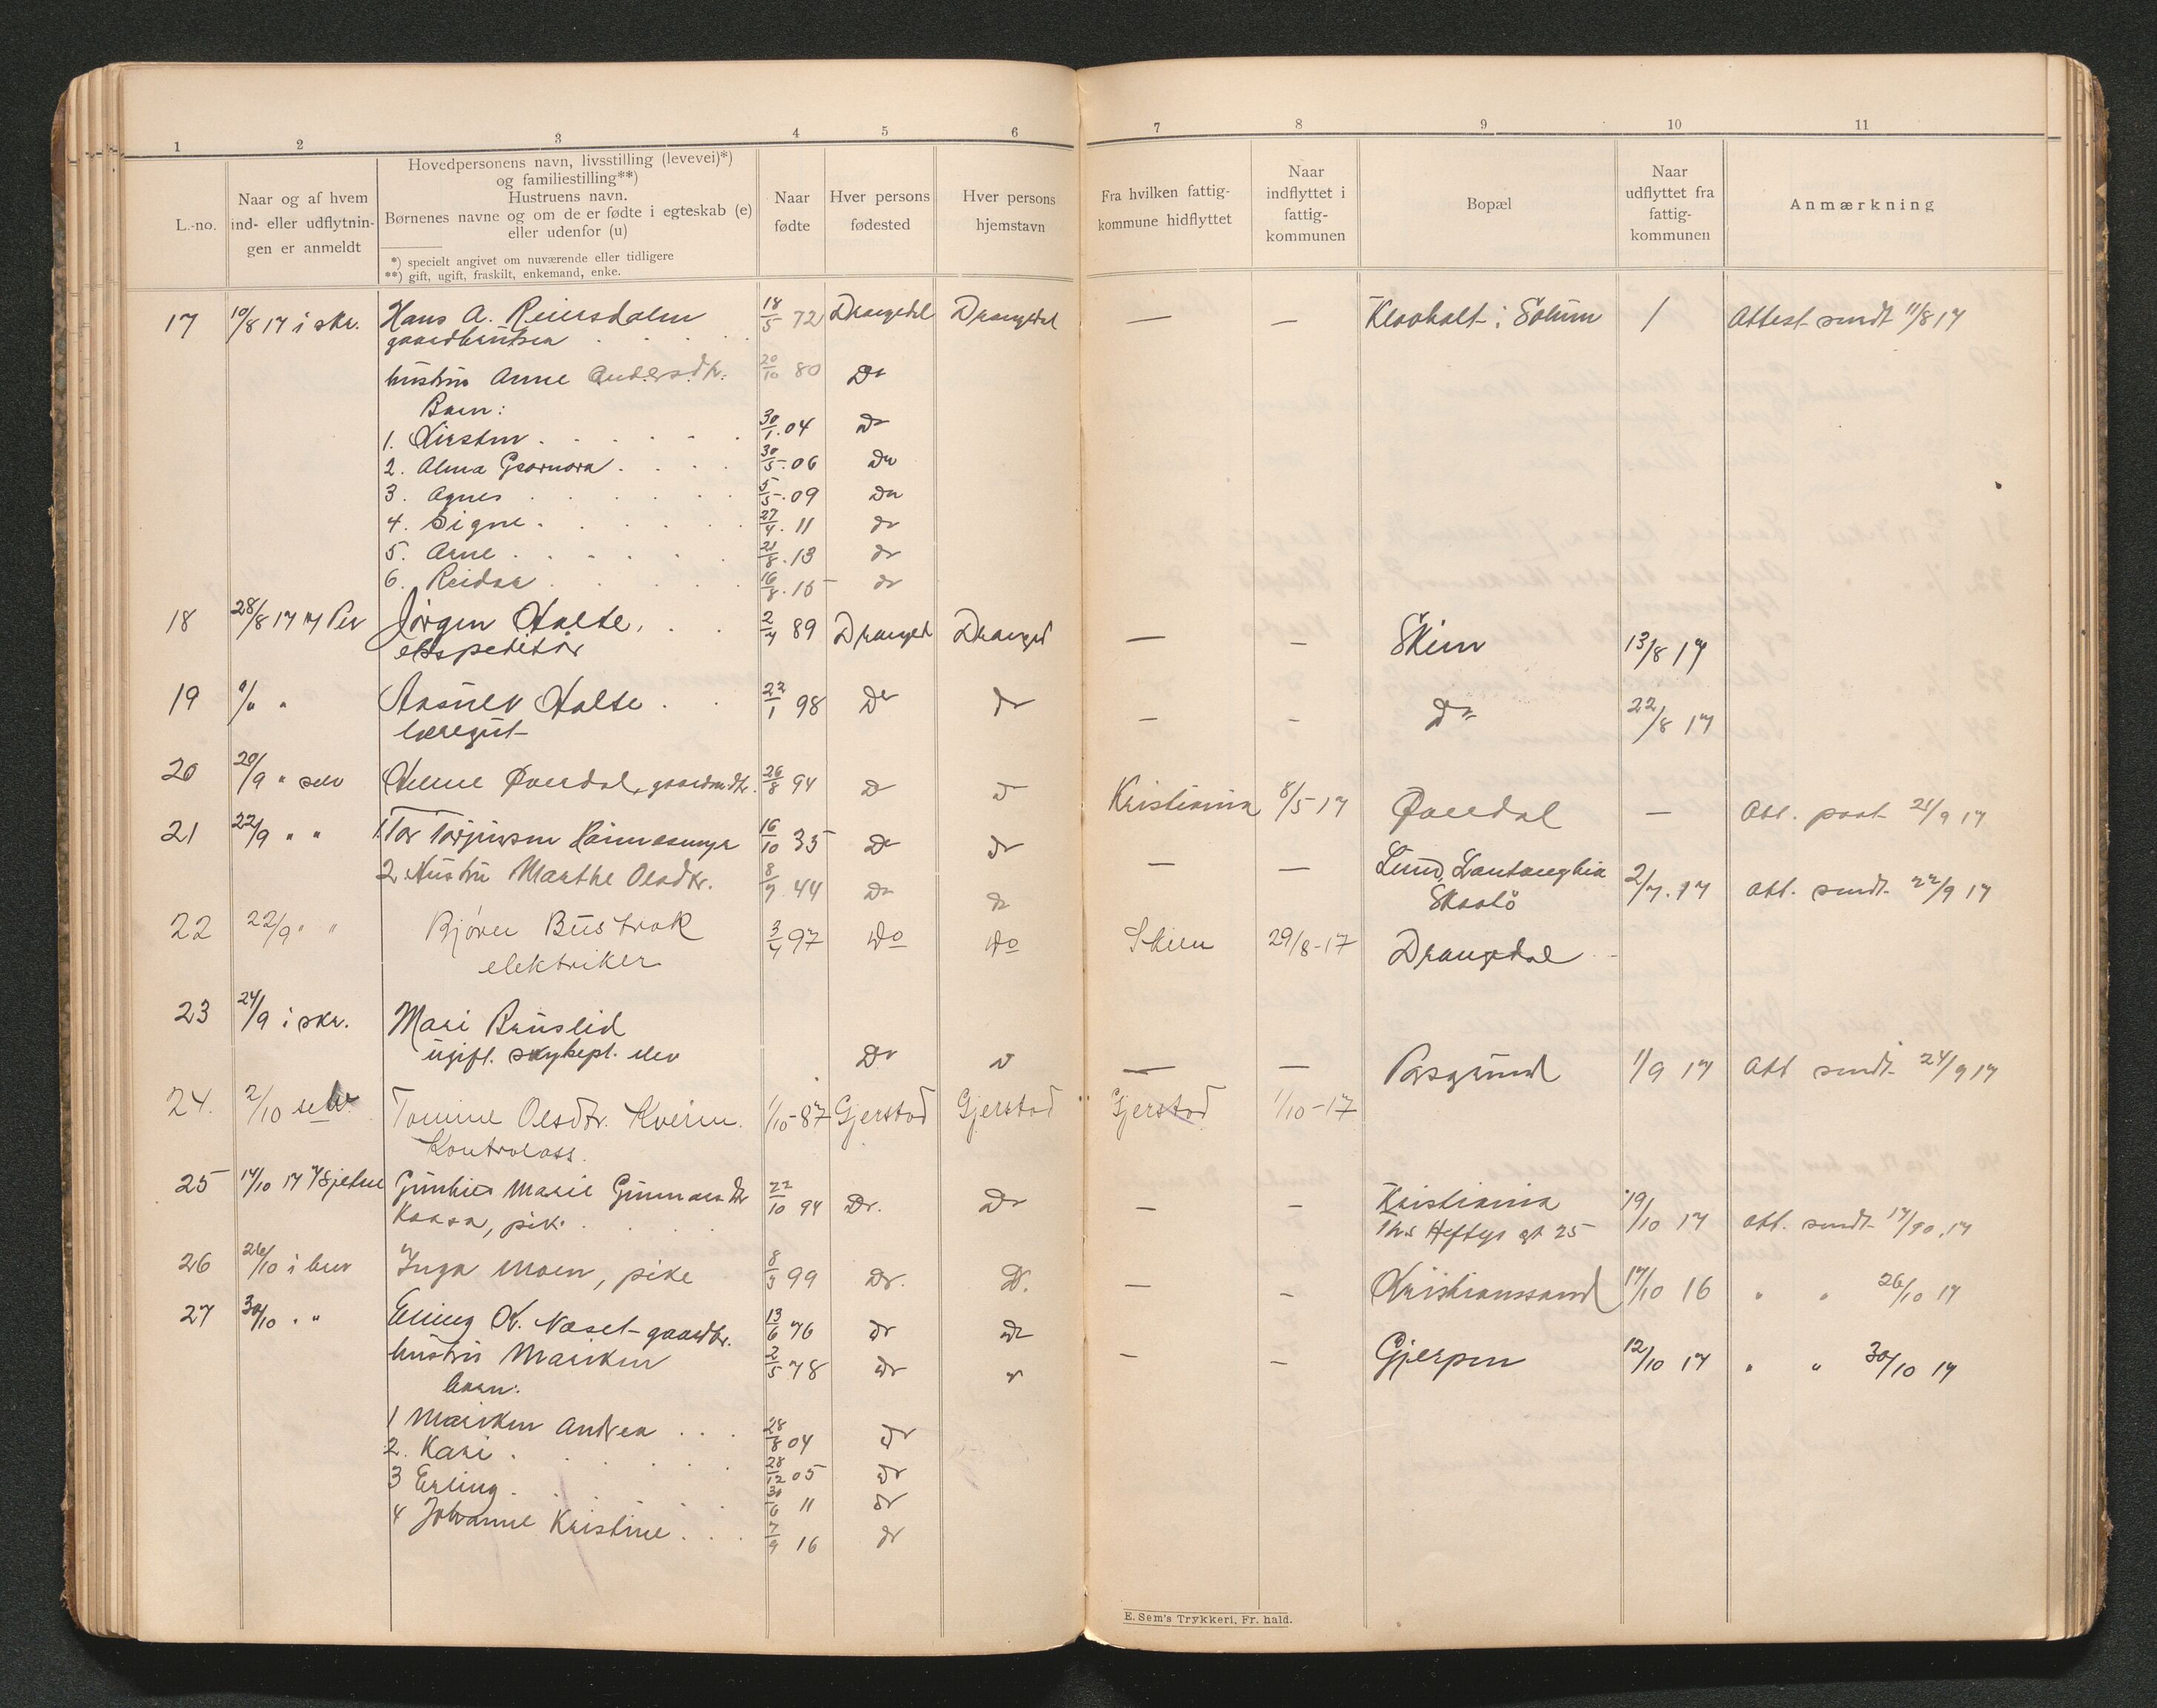 1 2 3 4 5 6 7 8 9 10 11
L.-no.
Naar og af hvem
ind- eller udflytnin-
gen er anmeldt
Hovedpersonens navn, livsstilling (levevei)*)
og familiestilling**)
Hustruens navn.
Børnenes navne og om de er fødte i egteskab (e)
eller udenfor (u)
*) specielt angivet om nuværende eller tidligere
**) gift, ugift, fraskilt, enkemand, enke.
Naar
fødte
Hver persons
fødested
Hver persons
hjemstavn
Fra hvilken fattig-
kommune hidflyttet
Naar
indflyttet i
fattig-
kommunen
Bopæl
Naar
udflyttet fra
fattig-
kommunen
Anmærkning
17 10/8 17 i skr. Hans A. 18/5 72 Drangedal Drangedal — — i Solum / Attest sendt 11/8 17
hustru Anne Andersdtr. 20/10 80 Do
Barn:
1. Kirsten 30/1 04 Do
2. Alma 30/5 06 Do
3. Agnes 5/5 09 Do
4. Signe 27/4 11 do
5. Arne 21/8 13 do
6. Reidar 16/8 15 do
18 28/8 17 Jörgen Halte 2/4 89 Dranged Dranged — — Skien 13/8 17
ekspeditör
19 Halte 22/1 98 Do do — — Do 22/8 17
læregut
20 20/9 " selv Øverdal, 26/8 94 Do do Kristiania 8/5 17 Øverdal — Att. 21/9 17
21 22/9 " " 1 Tor 16/10 35 Do do — — Lund,
2 Hustru Marthe Olsdtr. 44 Do do Skaatö 2/7. 17 att. sendt 22/9 17
22 22/9 " " Bjørn Bustrak 3/4 97 Do Do Skien 29/8-17 Drangedal
elektriker
23 24/9 i skr. Mari Bruslid
ugift. elev Do do — — Porsgrund 1/9 17 Att sendt 24/9 17
24. 2/10 selv Tomine Olsdtr. Kveim 1/10-87 Gjerstad Gjerstad Gjerstad 1/10-17
Kontrolass.
25 17/10 17 Marie 22/10 94 Dr. Do — — Kristiania 19/10 17 att. sendt 17/10.17
Kaasa, pike Ths Heftys gt 25
26 26/10 i brev Inga Moen, pike 99 Dr. D. — — Kristianssand 17/10 16 " " 26/10 17
27 30/10 " " Erling K. Næset gaardbr. 13/6 76 do do
hustru Mariken 2/5 78 do do — — Gjerpen 12/10 17 " " 30/10 17
barn:
1 Mariken Andrea 28/8 04 do
2. Kari 28/12 05 do
3 Erling 11 do
4 Johanne Kristine 7/9 16 do
E. Sem's Trykkeri, Fr. hald.